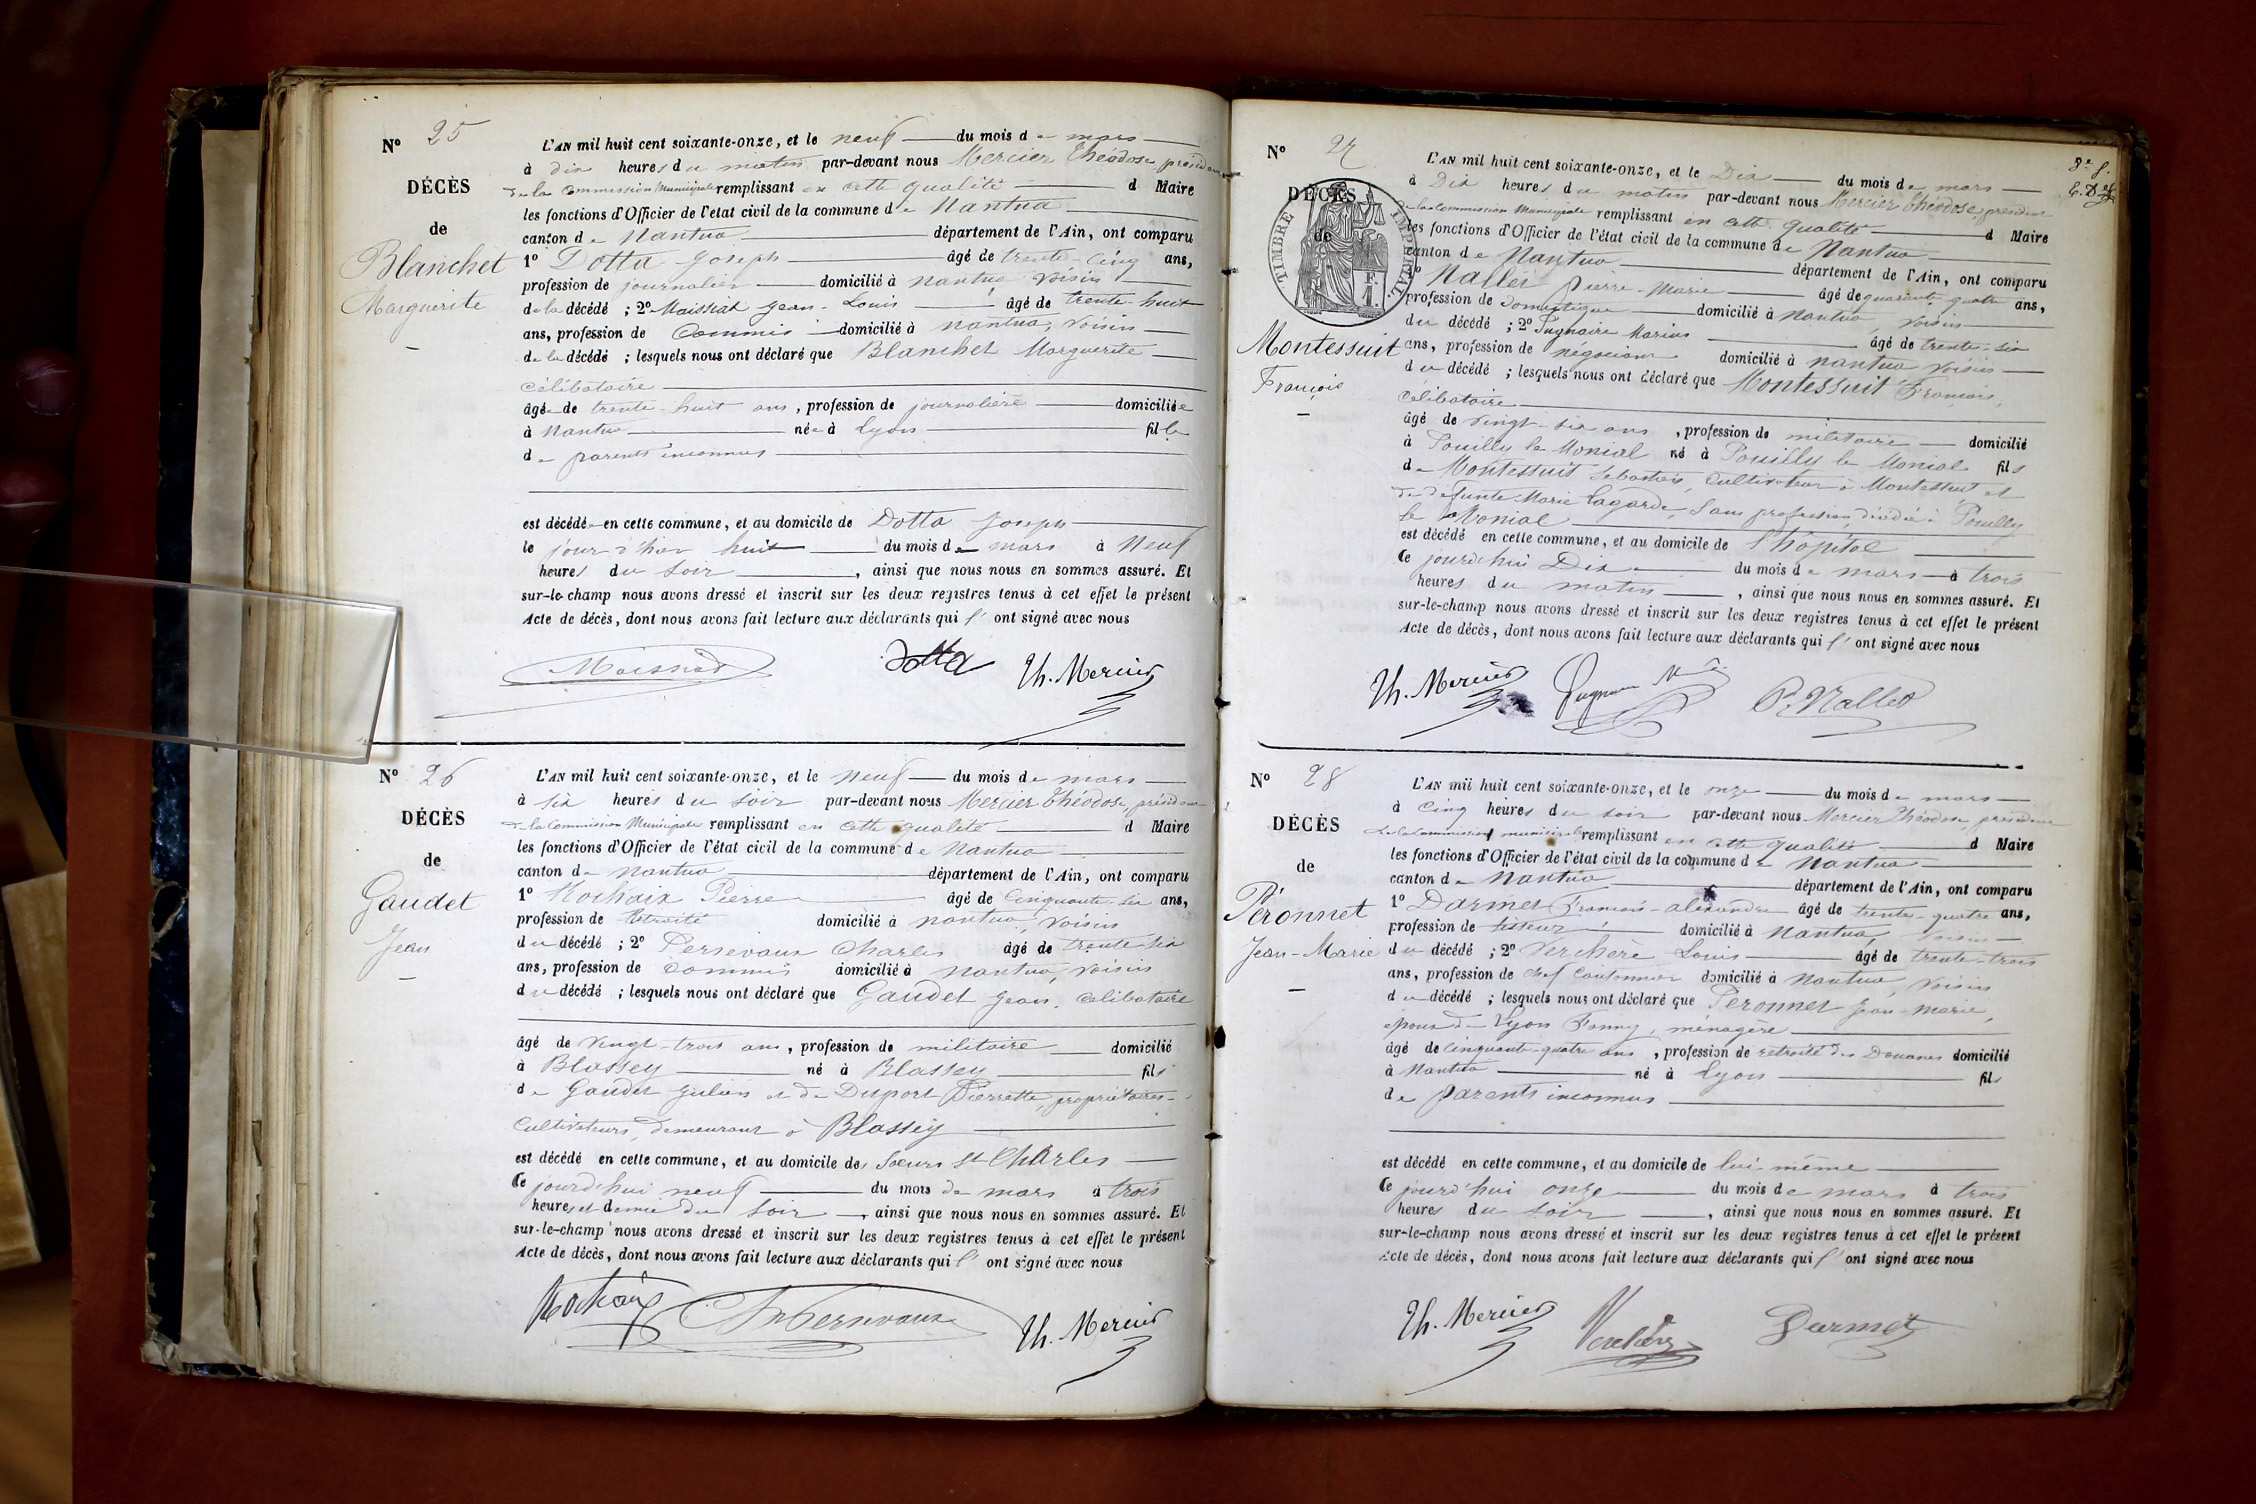 N° 25
DÉCÈS
de
Blanchet
Marguerite
L'AN mil huit cent soixante-onze, et le neuf du mois de mars
à dix heures du matin par-devant nous Mercier Théodose, président
de la Commission Municipale remplissant en cette qualité d Maire
les fonctions d'Officier de l'état civil de la commune de Nantua
canton de Nantua département de l'Ain, ont comparu
1° Dotta Joseph âgé de trente-cinq ans,
profession de journalier domicilié à Nantua, voisin
de la décédé ; 2° Maissiat Jean-Louis âgé de trente-huit
ans, profession de Commis domicilié à Nantua, voisin
de la décédé ; lesquels nous ont déclaré que Blanchet Marguerite
célibataire
âgée de trente-huit ans, profession de journalière domiciliée
à Nantua née à Lyon fille
de parents inconnus
est décédée en cette commune, et au domicile de Dotta Joseph
le jour d'hier huit du mois de mars à Neuf
heures du soir, ainsi que nous nous en sommes assuré. Et
sur-le-champ nous avons dressé et inscrit sur les deux registres tenus à cet effet le présent
Acte de décès, dont nous avons fait lecture aux déclarants qui l' ont signé avec nous
Dotta Th. Mercier
N° 26
DÉCÈS
de
Gaudet
Jean
L'AN mil huit cent soixante-onze, et le neuf du mois de mars
à six heures du soir par-devant nous Mercier Théodose, président
de la Commission Municipale remplissant en cette qualité d Maire
les fonctions d'Officier de l'état civil de la commune de Nantua
canton de Nantua département de l'Ain, ont comparu
1° Rochaix Pierre âgé de cinquante-six ans,
profession de Retraité domicilié à Nantua, voisin
du décédé ; 2° Persevaux Charles âgé de trente six
ans, profession de Commis domicilié à Nantua, voisin
du décédé ; lesquels nous ont déclaré que Gaudet Jean, célibataire
âgé de vingt-trois ans, profession de militaire domicilié
à Blassey né à Blassey fils
de Gaudet Julien et de Duport Pierrette, propriétaires-
Cultivateurs, demeurant à Blassey
est décédé en cette commune, et au domicile des Sœurs St Charles
Ce jourd'hui neuf du mois de mars à trois
heures et demie du soir, ainsi que nous nous en sommes assuré. Et
sur-le-champ nous avons dressé et inscrit sur les deux registres tenus à cet effet le présent
Acte de décès, dont nous avons fait lecture aux déclarants qui l' ont signé avec nous
Rochaix Th. Mercier
N° 27
DÉCÈS
de
TIMBRE IMPÉRIAL
Montessuit
François
L'AN mil huit cent soixante-onze, et le Dix du mois de mars
à Dix heures du matin par-devant nous Mercier Théodose, président
de la Commission Municipale remplissant en cette qualité d Maire
les fonctions d'Officier de l'état civil de la commune de Nantua
canton de Nantua département de l'Ain, ont comparu
1° Nallet Pierre-Marie âgé de quarante-quatre ans,
profession de Domestique domicilié à Nantua, voisin
du décédé ; 2° Pugnaire Marius âgé de trente-six
ans, profession de négociant domicilié à Nantua voisin
du décédé ; lesquels nous ont déclaré que Montessuit François,
célibataire
âgé de vingt-six ans, profession de militaire domicilié
à Pouilly le Monial né à Pouilly le Monial fils
de Montessuit Sebastien, Cultivateur à Montessuit et
de defunte Marie Lagarde, Sans profession, décédée à Pouilly
le Monial
est décédé en cette commune, et au domicile de l'hôpital
Ce jourd'hui Dix du mois de mars à trois
heures du matin, ainsi que nous nous en sommes assuré. Et
sur-le-champ nous avons dressé et inscrit sur les deux registres tenus à cet effet le présent
Acte de décès, dont nous avons fait lecture aux déclarants qui l' ont signé avec nous
Th. Mercier P. Nallet
N° 28
DÉCÈS
de
Péronnet
Jean-Marie
L'AN mil huit cent soixante-onze, et le onze du mois de mars
à Cinq heures du soir par-devant nous Mercier Théodose président
de la Commission municipale remplissant en cette qualité d Maire
les fonctions d'Officier de l'état civil de la commune de Nantua
canton de Nantua département de l'Ain, ont comparu
1° Darmet François-Alexandre âgé de trente-quatre ans,
profession de tisseur domicilié à Nantua, voisin
du décédé ; 2° Verchère Louis âgé de trente-trois
ans, profession de chef Cantonnier domicilié à Nantua, voisin
du décédé ; lesquels nous ont déclaré que Péronnet Jean-Marie,
époux de Lyon Fanny, ménagère
âgé de cinquante-quatre ans, profession de retraité des Douanes domicilié
à Nantua né à Lyon fils
de parents inconnus
est décédé en cette commune, et au domicile de lui-même
Ce jourd'hui onze du mois de mars à trois
heures du soir, ainsi que nous nous en sommes assuré. Et
sur-le-champ nous avons dressé et inscrit sur les deux registres tenus à cet effet le présent
Acte de décès, dont nous avons fait lecture aux déclarants qui l' ont signé avec nous
Th. Mercier Verchère Darmet